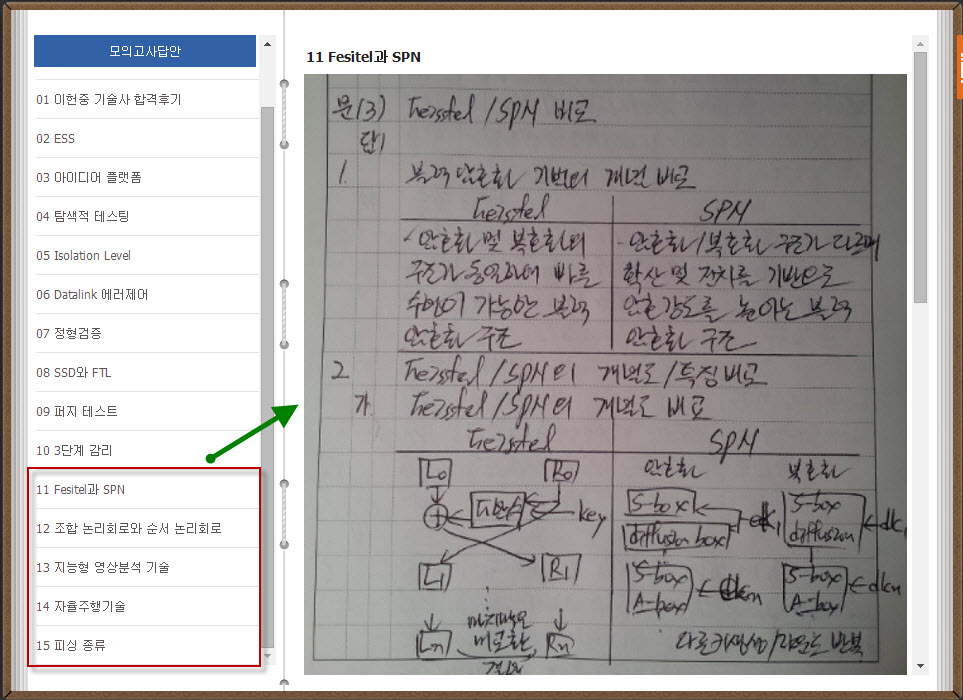 모의고사답안
01 이헌중 기술사 합격후기
02 ESS
03 아이디어 플랫폼
04 탐색적 테스팅
05 Isolation Level
06 Datalink 에러제어
07 정형검증
08 SSD와 FTL
09 퍼지 테스트
10 3단계 감리
11 Fesitel과 SPN
12 조합 논리회로와 순서 논리회로
13 지능형 영상분석 기술
14 자율주행기술
15 피싱 종류
11 Fesitel과 SPN
문(3) Feistel / SPN 비교
답)
1. 블럭 암호화 기법의 개념 비교
Feistel SPN
- 암호화 및 복호화의 - 암호화/복호화 구조가 다르며
구조가 동일하며 빠른 확산 및 전치를 기반으로
수행이 가능한 블럭 암호강도를 높이는 블럭
암호화 구조 암호화 구조
2. Feistel / SPN의 개념도/특징 비교
가. Feistel / SPN의 개념도 비교
Feistel SPN
L0 R0 암호화 복호화
key
S-box S-box
diffusion box diffusion
L1 R1
S-box S-box
A-box A-box
dkn
Ln Rn
라운드 반복